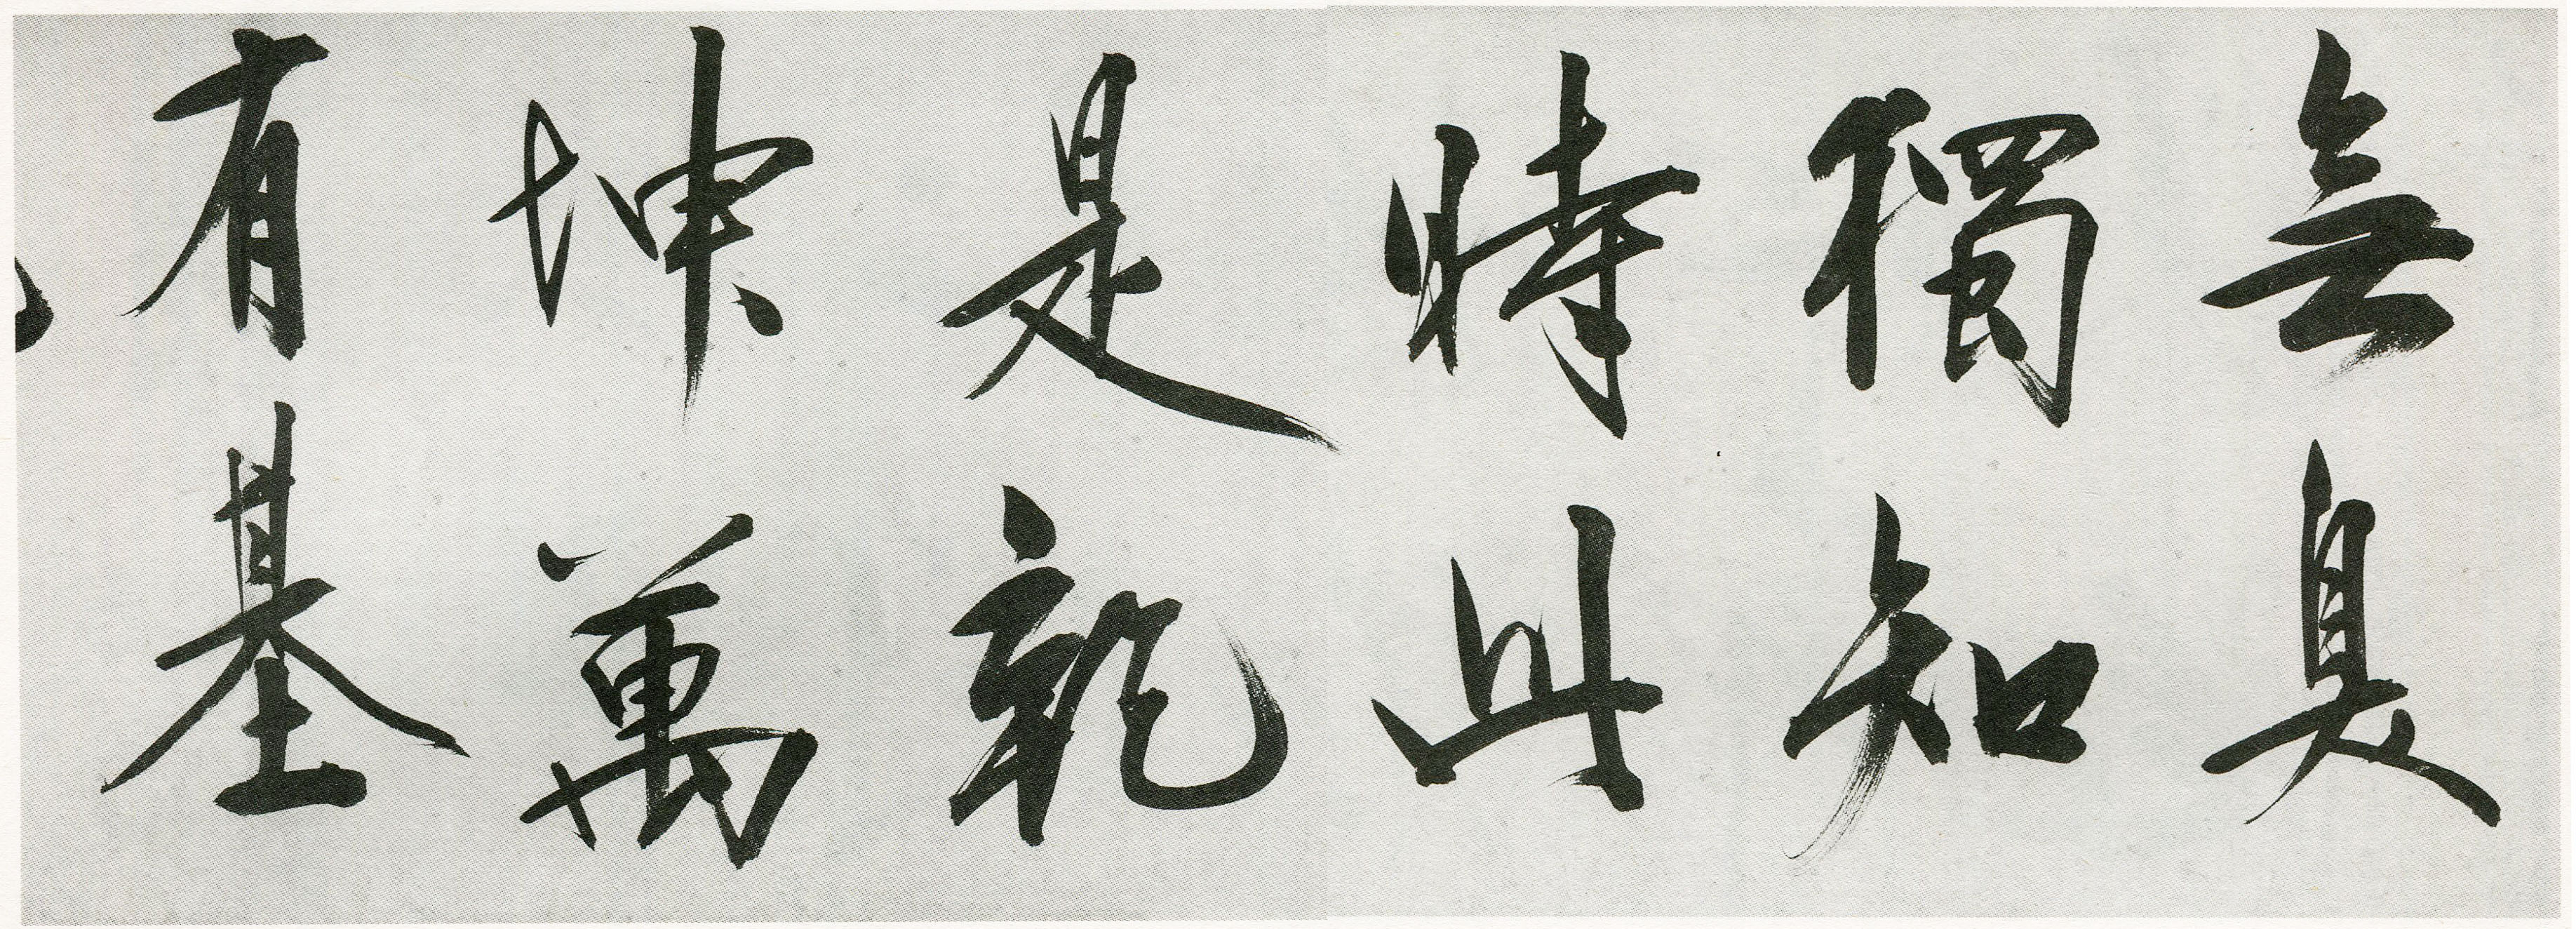 無臭
獨知
時此
是乾
坤萬
有基